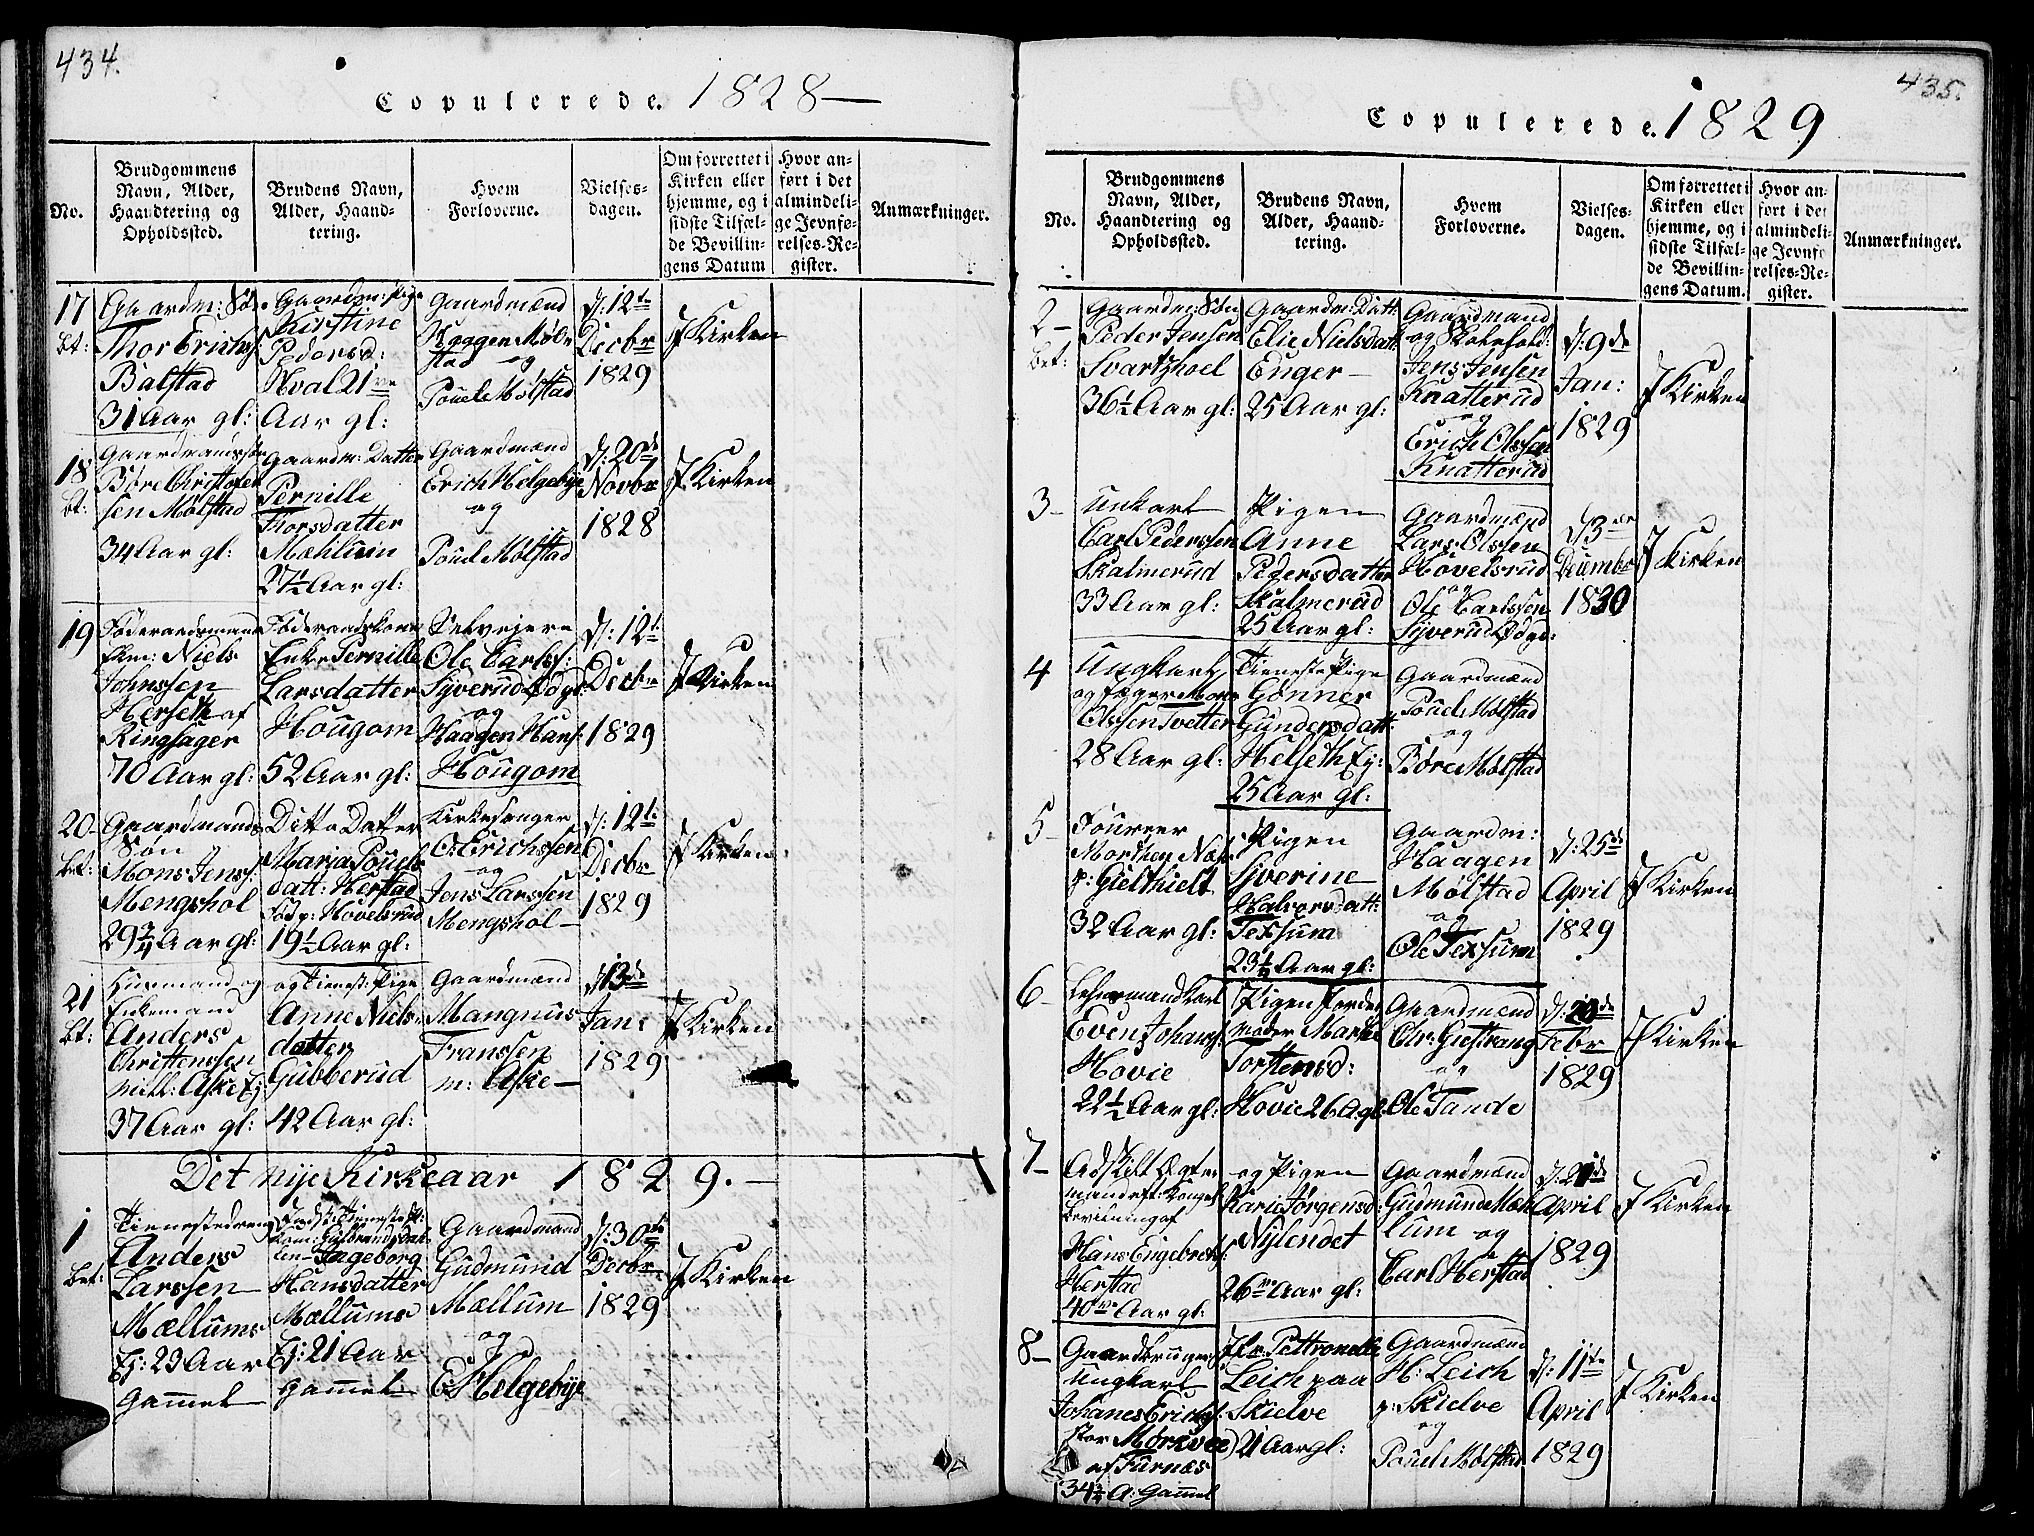 434.
Copulerede. 1828 —
No.
Brudgommens
Navn, Alder,
Haandtering og
Opholdssted.
Brudens Navn,
Alder, Haand-
tering.
Hvem
Forloverne.
Vielses-
dagen.
Om forrettet i
Kirken eller
hjemme, og i
sidste Tilfæl-
de Bevillin-
gens Datum
Hvor an-
ført i det
almindeli-
ge Jevnfø-
relses-Re-
gister.
Anmærkninger.
17
bt:
Gaardm: Søn
Thor Erichs:
Balstad
31 Aar gl:
Gaardm: Pige
Kirstine
Pedersd:
Hval 21ve
Aar gl:
Gaardmænd
Haagen Møl-
stad og
Pouel Mølstad
d: 12te
Decbr
1829
J Kirken
18
bt:
Gaardmandssøn
Børe Christofer
sen Mølstad
34 Aar gl:
Gaardm: Datter
Pernille
Thorsdatter
Mæhlum
27½ Aar gl:
Gaardmænd
Erich Helgebye
og
Pouel Mølstad
d: 20de
Novbr
1828
J Kirken
19
Føderaadsmand
Ekm: Niels
Johnssen
Herseth af
Ringsager
70 Aar gl:
Føderaadskone
Enke Pernille
Larsdatter
Hougom
52 Aar gl:
Selvejere
Ole Carlss:
Syverud Ødg:
og
Haagen Hans:
Hougom
d: 12te
Decbr
1829
J Kirken
20 —
bet:
Gaardmands
Søn
Mons Jens:
Mengshol
29¾ Aar gl:
Ditto Datter
Marja Pouels
datt: Herstad
Fød p: Hovelsrud
19½ Aar gl:
Kirkesanger
O: Erichssen
og
Jens Larssen
Mengshol —
d: 12te
Decbr
1829
J Kirken
21
bt:
Husmand og
Enkemand
Anders
Christenssen
Aske Ej
37 Aar gl:
og Tieneste Pige
Anne Niels-
datter
Gubberud
42 Aar gl:
Gaardmænd
Mangnus
Franssen
m: Aske —
d 13de
Jan:
1829
J Kirken
Det nye Kirkeaar 1829. —
1
bet:
Tienestedreng
Anders
Larssen
Mællums
Ej: 23 Aar
Gammel
Ingeborg
Hansdatter
Mællums
Ej: 21 Aar
gammel
Gaardmænd
Gudmund
Mællum
og
E: Helgebye
d: 30te
Decbr
1829
J Kirken
435.
Copulerede. 1829
No.
Brudgommens
Navn, Alder,
Haandtering og
Opholdssted.
Brudens Navn,
Alder, Haand-
tering.
Hvem
Forloverne.
Vielses-
dagen.
Om forrettet i
Kirken eller
hjemme, og i
sidste Tilfæl-
de Bevillin-
gens Datum.
Hvor an-
ført i det
almindeli-
ge Jevnfø-
relses-Re-
gister.
Anmærkninger.
2 —
bet:
Gaardm: Søn
Peder Jensen
Svartzhoel
36½ Aar gl:
Gaardm: Datt:
Elie Nielsdatt
Enger —
25 Aar gl:
Gaardmand
og
Jens Jensen
Knatterud
og
Erich Olssen
Knatterud
d: 9de
Jan:
1829
J Kirken
3 —
Unkarl
Carl Pederssen
Skalmerud
33 Aar gl:
Pigen
Anne
Pedersdatter
Skalmerud
25 Aar gl:
Gaardmænd
Lars Olssen
Hovelsrud
og
Ole Carlssen
Syverud Ødge:
d 3die
Decembr
1830
J Kirken
4
Ungkarl
og Jæger Mons
Olssen Svetter
28 Aar gl:
Tieneste Pige
Gønner
Gundersdatt:
Helseth Ej:
25 Aar gl:
Gaardmænd
Pouel Mølstad
og
Børe Mølstad
5 —
Foureer
Morthen Næs
p: Gielthielt
32 Aar gl:
Pigen
Syverine
Halvorsdatt:
Texsum
23½ Aar gl:
Gaardm:
Haagen
Mølstad
og
Ole Texsum
d: 25de
April
1829
J Kirken
6 —
Even Johans:
Hovie
22½ Aar gl:
Pigen
Marthe
Torstensd:
Hovie 26 A gl
Gaardmænd
Chr: Giestrang
og
Ole Tande
d: 20de
Febr
1829
J Kirken
7 —
Adskilt Ægte-
mand eft: Kongel:
Bevilling af
Hans Engebrets:
Herstad
40ve Aar gl:
og Pigen
Karie Jørgensd:
Nylendet
26ve Aar gl:
Gaardmænd
Gudmund Mæh
lum og
Carl Herstad
d: 21de
April
1829
J Kirken
8 —
Gaardbruger
Ungkarl
Johanes Erichs:
stor Mørkvee
af Furnæs
34¾ A: Gamel
Jfr: Pettronelle
Leich paa
Skielve
21 Aar gl:
Gaardmænd
H: Leich
p: Skielve
og
Pouel Mølstad
d: 11te
April
1829
J Kirken